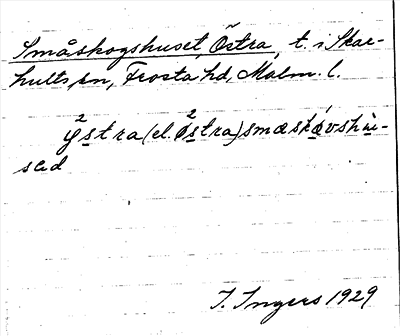 Småskogshuset, Östra, t. i Skar-
hults sn, Frosta hd, Malm. l.
y²stra (el. ø²stra) smɑskɑ́vshu̇-
sɑd
I. Ingers 1929